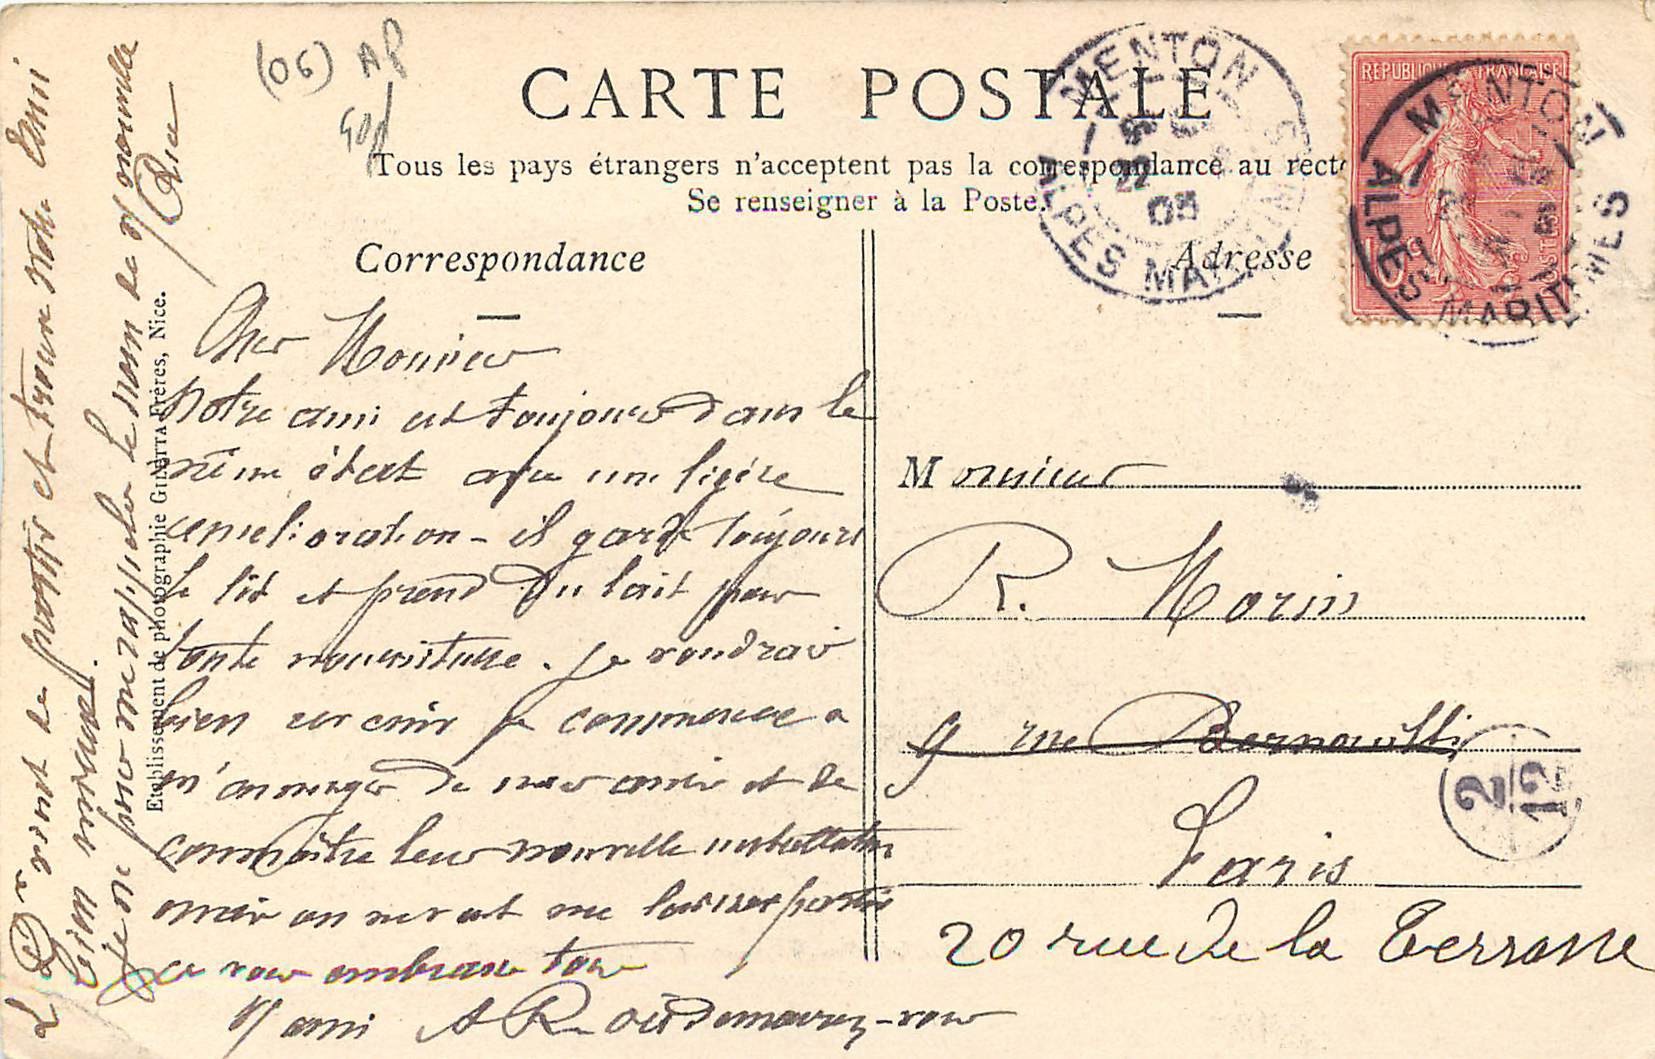 (06) AP
CARTE POSTALE
Tous les pays étrangers n'acceptent pas la correspondance au recto
Se renseigner à la Poste.
Correspondance
Adresse
MENTON
22
05
ALPES MARITIMES
REPUBLIQUE FRANÇAISE
10c
POSTES
MENTON
ALPES MARITIMES
Cher Monsieur
Notre ami est toujours dans le
même état avec une légère
amelioration - il garde toujours
le lit et prend du lait pour
toute nourriture. Je voudrais
bien
m'arranger de
connaître leur nouvelle installation
mais on ne veut me laisser partir
Je vous embrasse tous
V/ ami A R où demeurez-vous
Le Dr vient de passer et trouve notre ami
bien mieux.
Je ne puis me rappeler le nom de v/ nouvelle
Rue
Etablissement de photographie GILETTA Frères, Nice.
Monsieur
R. Morin
9 rue Bernouilli
Paris
20 rue de la Terrasse
2
12